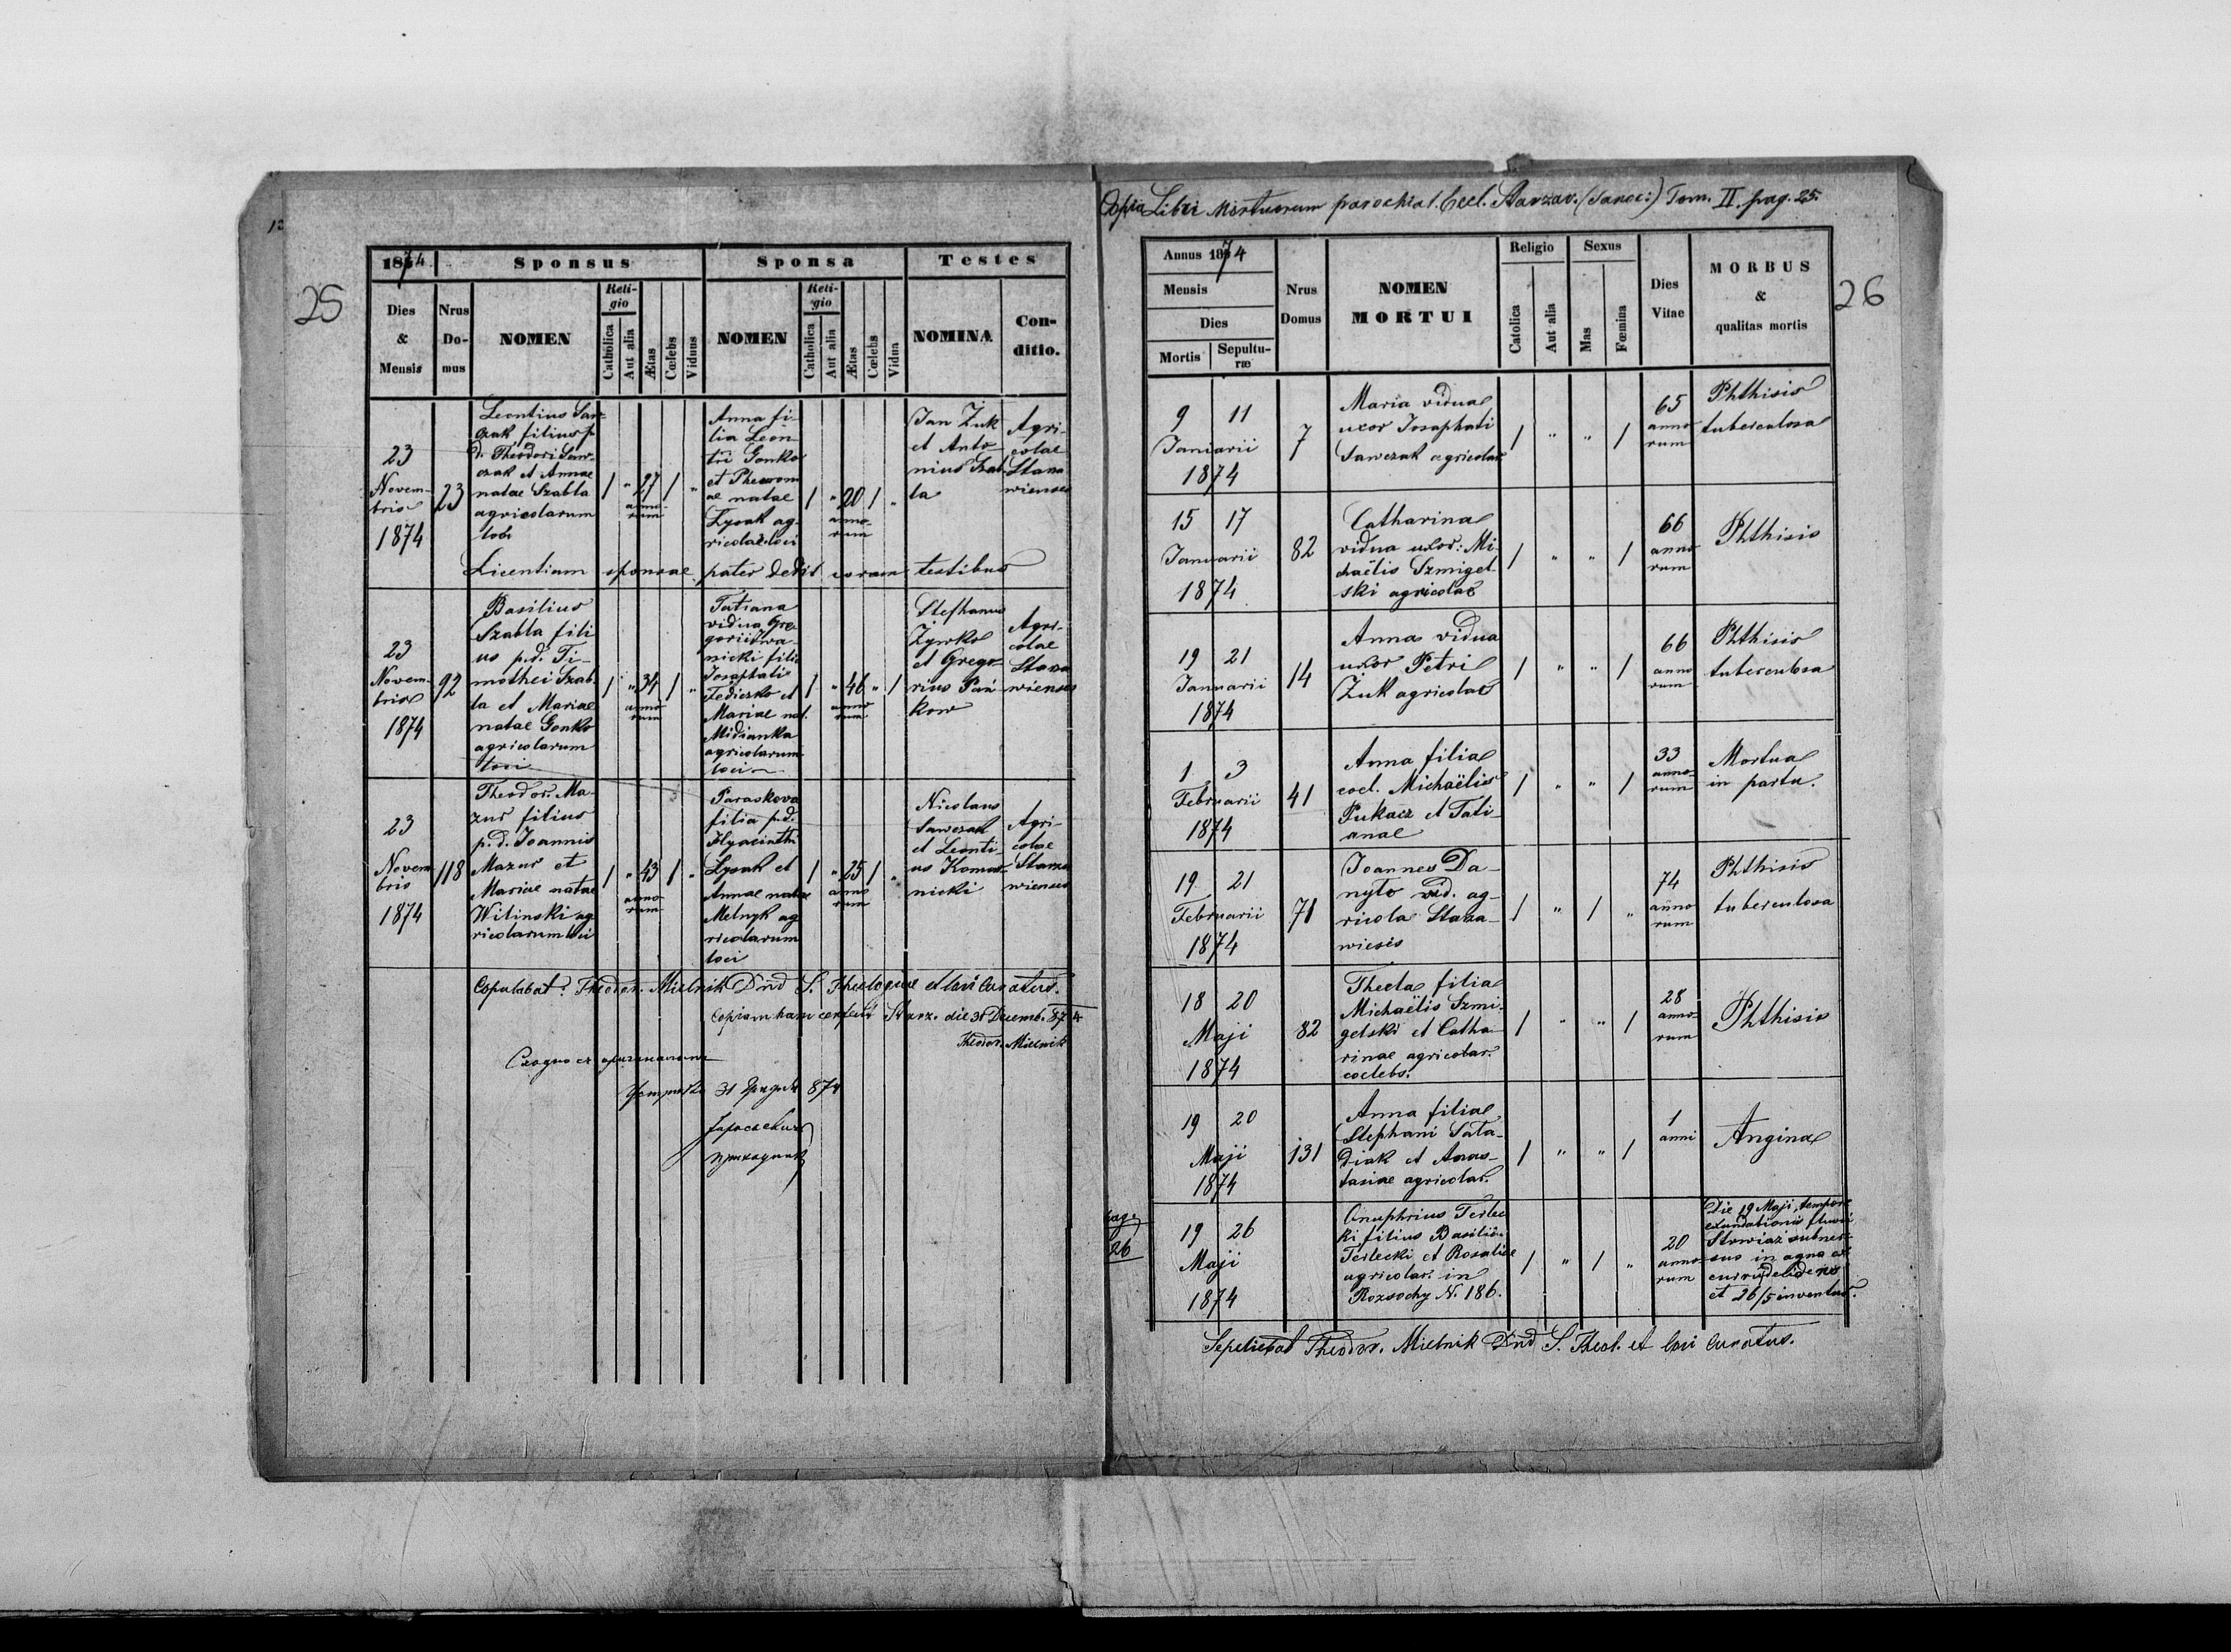 13
25
1874 Sponsus Sponsa Testes
Dies & Mensis
Nrus Domus
NOMEN
Religio
Catholica
Aut alia
Ætas
Cœlebs
Viduus
NOMEN
Religio
Catholica
Aut alia
Ætas
Cœlebs
Vidua
NOMINA
Con-
ditio.
23
Novem-
bris
1874
23
Leontius Saw-
czak, filius p.
d. Theodori Saw-
czak et Annae
natae Szabla
agricolarum
loci
1 " 27 1 "
anno-
rum
Anna fi-
lia Leon-
tii Gonko
et Theuron-
ae natae
Lysak ag-
ricolar. loci
1 " 20 1 "
anno-
rum
Jan Żuk
et Anto-
nius Szab-
la
Agri-
colae
Starza
wienses
Licentiam sponsae pater dedit coram testibus
23
Novem-
bris
1874
92
Basilius
Szabla fili
us p.d. Ti-
mothei Szab-
la et Mariae
natae Gonko
agricolarum
loci
1 " 34 1 "
anno
rum
Tatiana
vidua Gre-
gorii Iwa-
nicki filia
Josaphati
Fediczko et
Mariae nat.
Midianka
agricolarum
loci
1 " 46 " 1
anno
rum
Stephanus
Żywko
et Grego-
rius Pań-
kow
Agri-
colae
Starza
wienses
23
Novem
bris
1874
118
Theodor. Ma-
zur filius
p.d. Joannis
Mazur et
Mariae natae
Wilinski ag
ricolarum loci
1 " 43 1 "
anno-
rum
Paraskova
filia p.d.
Hyacinthi
Lysak et
Annae natae
Melnyk ag
ricolarum
loci
1 " 25 1 "
anno
rum
Nicolaus
Sawczak
et Leonti
us Komar-
nicki
Agri-
colae
Starza
wienses
Copulabat: Theodor. Mielnik Dnd S. Theologiae et loci Curatus.
Copiam hanc confecit Starz. die 31 Decemb. 874
Theodor. Mielnik
31 874
Copia Libri Mortuorum parochial. Eccl. Starzav. (Sanoc:) Tom. II. pag. 25.
26
Annus 1874
Mensis
Dies
Mortis
Sepultu-
ræ
Nrus
Domus
NOMEN
MORTUI
Religio
Catolica
Aut alia
Sexus
Mas
Fœmina
Dies
Vitae
MORBUS
&
qualitas mortis
9 11
Januarii
1874
7
Maria vidua
uxor Josaphati
Sawczak agricolae
1 " " 1
65
anno
rum
Phthisis
tuberculosa
15 17
Januarii
1874
82
Catharina
vidua uxor: Mi-
chaëlis Szmigel-
ski agricolae
1 " " 1
66
anno
rum
Phthisis
19 21
Januarii
1874
14
Anna vidua
uxor Petri
Żuk agricolae
1 " " 1
66
anno
rum
Phthisis
tuberculosa
1 3
Februarii
1874
41
Anna filia
coel. Michaëlis
Pukacz et Tati-
anae
1 " " 1
33
anno-
rum
Mortua
in partu.
19 21
Februarii
1874
71
Joannes Da-
nyło vid. ag-
ricola Starza-
wiesis
1 " 1 "
74
anno
rum
Phthisis
tuberculosa
18 20
Maji
1874
82
Thecla filia
Michaëlis Szmi-
gelski et Catha-
rinae agricolar.
coelebs.
1 " " 1
28
anno-
rum
Phthisis
19 20
Maji
1874
131
Anna filia
Stephani Sała-
diak et Anas-
tasiae agricolar.
1 " " 1
1
anni
Angina
pag.
26
19 26
Maji
1874
Onuphrius Terlec
ki filius Basilii
Terlecki et Rosaliae
agricolar. in
Rozsochy N. 186.
1 " 1 "
20
anno-
rum
Die 19 Maji, tempore
exundationis fluvii
Strwiaż submer-
sus in aqua ex
curru delidens
et 26/5 inventus.
Sepeliebat Theodor. Mielnik Dnd S. Theol. et loci Curatus.